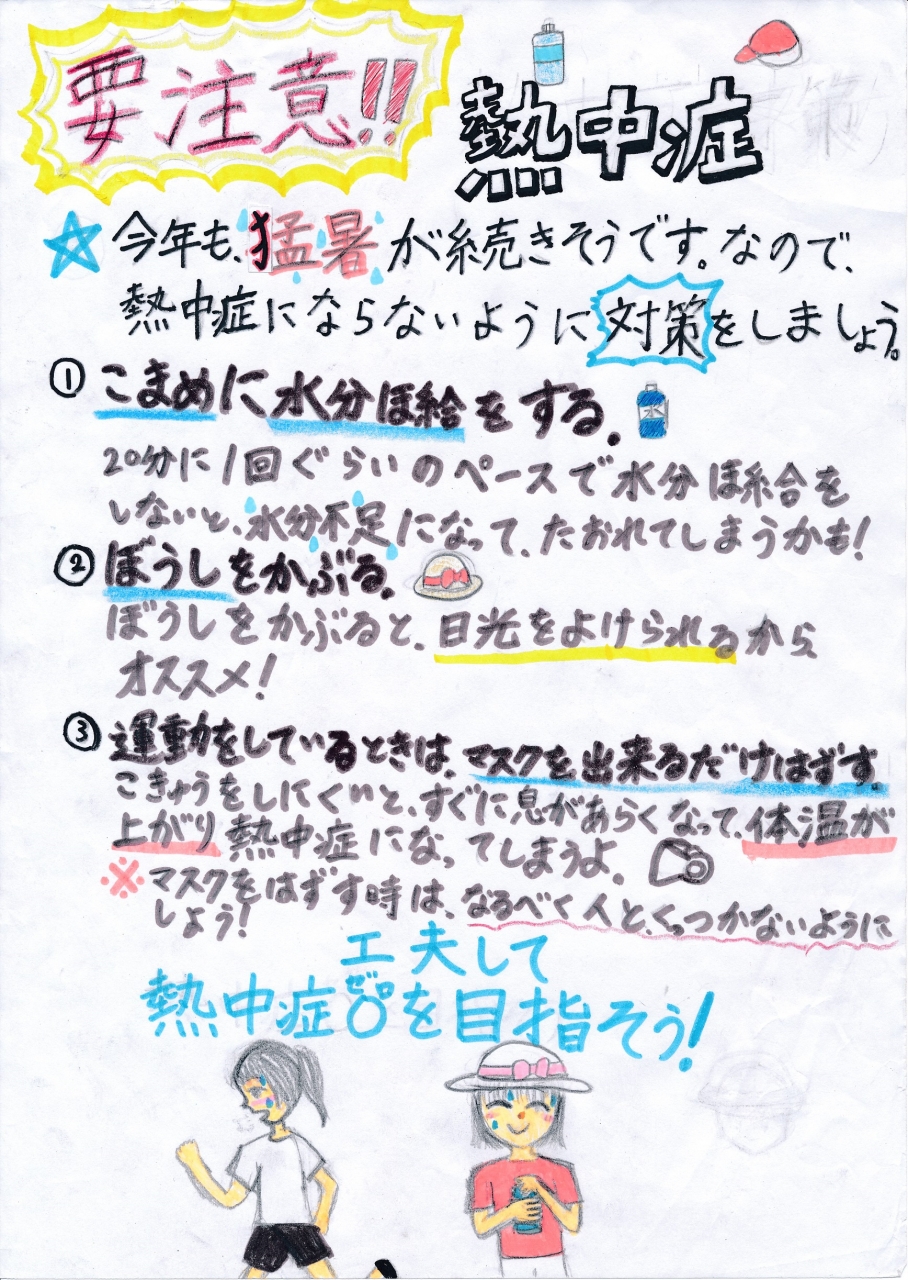 要注意!!
熱中症
☆今年も、猛暑が続きそうです。なので、
熱中症にならないように対策をしましょう。
①こまめに水分ほ給をする。
水
20分に1回ぐらいのペースで水分ほ給を
しないと、水分不足になって、たおれてしまうかも!
②ぼうしをかぶる。
ぼうしをかぶると、日光をよけられるから
オススメ!
③運動をしているときは、マスクを出来るだけはずす。
こきゅうをしにくいと、すぐに息があらくなって、体温が
上がり熱中症になってしまうよ。
※マスクをはずす時は、なるべく人と、くっつかないように
しよう!
工夫して
ゼロ
熱中症0を目指そう!